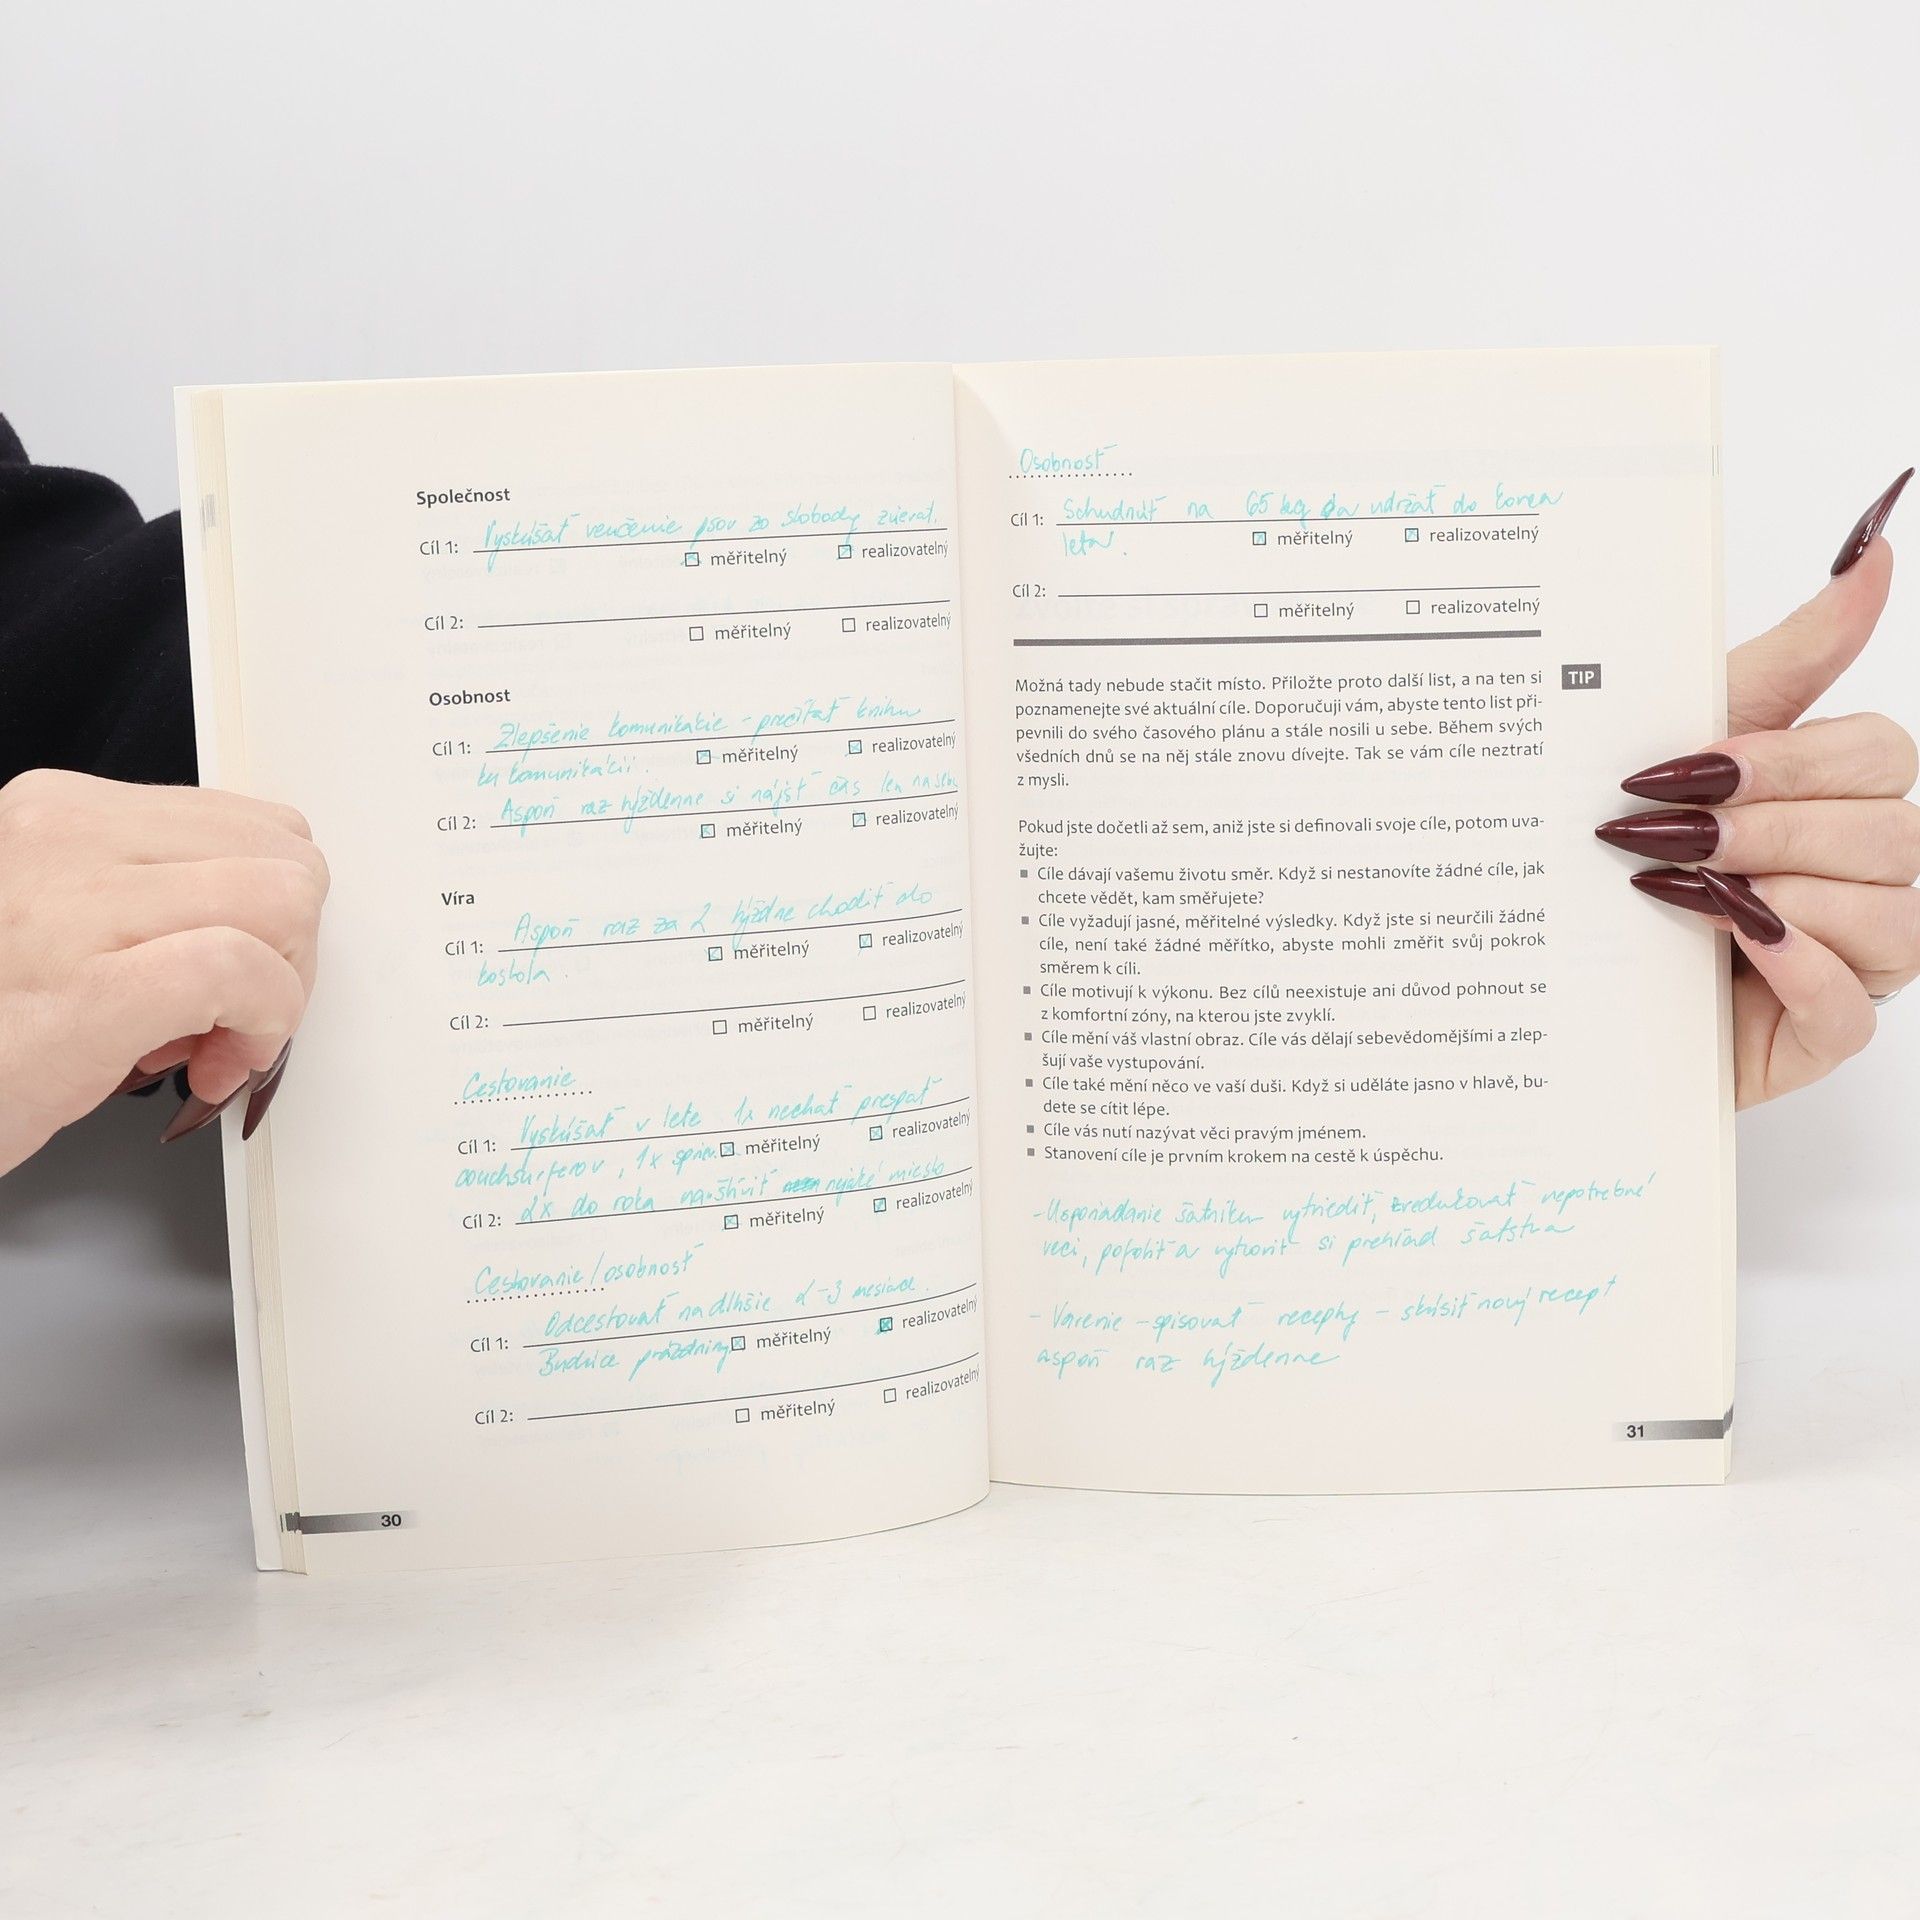 Společnost
Vyskúšať venčenie psov zo slobody zvierat.
Cíl 1:
měřitelný realizovatelný
Cíl 2:
měřitelný realizovatelný
Osobnost
Zlepšenie komunikácie - prečítať knihu
Cíl 1:
měřitelný realizovatelný
ku komunikácii.
Aspoň raz týždenne si nájsť čas len na seba
Cíl 2:
měřitelný realizovatelný
Víra
Aspoň raz za 2 týždne chodiť do
Cíl 1:
měřitelný realizovatelný
kostola.
Cíl 2:
měřitelný realizovatelný
Cestovanie
Vyskúšať v lete 1x nechať prespať
Cíl 1:
měřitelný realizovatelný
couchsurferov, 1x
2x do roka navštíviť nejaké miesto
Cíl 2:
měřitelný realizovatelný
Cestovanie/osobnosť
Odcestovať na dlhšie 2-3 mesiace.
Cíl 1:
měřitelný realizovatelný
Budúce prázdniny
Cíl 2:
měřitelný realizovatelný
30
Osobnosť
Schudnúť na 65 kg a udržať do konca
Cíl 1:
leta.
měřitelný realizovatelný
Cíl 2:
měřitelný realizovatelný
Možná tady nebude stačit místo. Přiložte proto další list, a na ten si
TIP
poznamenejte své aktuální cíle. Doporučuji vám, abyste tento list při-
pevnili do svého časového plánu a stále nosili u sebe. Během svých
všedních dnů se na něj stále znovu dívejte. Tak se vám cíle neztratí
z mysli.
Pokud jste dočetli až sem, aniž jste si definovali svoje cíle, potom uva-
žujte:
▪ Cíle dávají vašemu životu směr. Když si nestanovíte žádné cíle, jak
chcete vědět, kam směřujete?
▪ Cíle vyžadují jasné, měřitelné výsledky. Když jste si neurčili žádné
cíle, není také žádné měřítko, abyste mohli změřit svůj pokrok
směrem k cíli.
▪ Cíle motivují k výkonu. Bez cílů neexistuje ani důvod pohnout se
z komfortní zóny, na kterou jste zvyklí.
▪ Cíle mění váš vlastní obraz. Cíle vás dělají sebevědomějšími a zlep-
šují vaše vystupování.
▪ Cíle také mění něco ve vaší duši. Když si uděláte jasno v hlavě, bu-
dete se cítit lépe.
▪ Cíle vás nutí nazývat věci pravým jménem.
▪ Stanovení cíle je prvním krokem na cestě k úspěchu.
- Usporiadanie šatníku vytriediť, zredukovať nepotrebné
veci, a vytvoriť si prehľad šatstva
- Varenie - spisovať recepty - skúsiť nový recept
aspoň raz týždenne
31